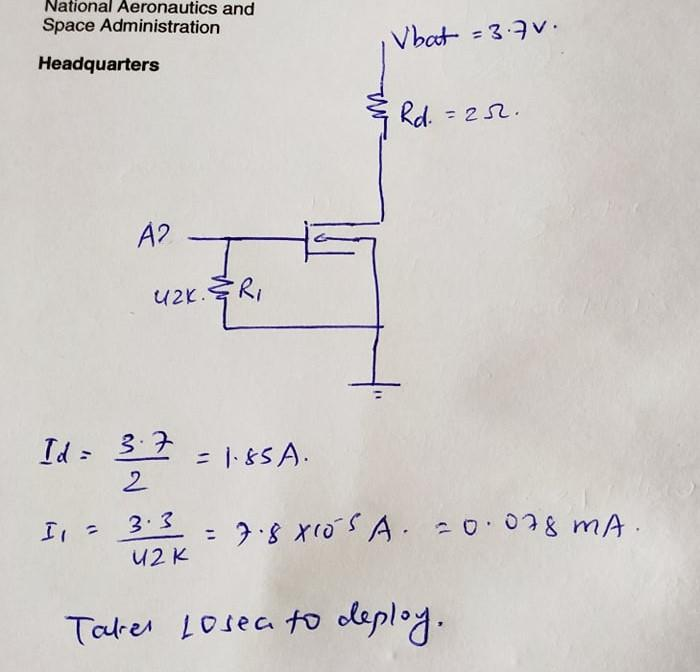 National Aeronautics and
Space Administration
Headquarters
Vbat = 3.7V.
Rd. = 2Ω.
A2
42K. R1
Id = 3.7 / 2 = 1.85A.
I1 = 3.3 / 42K = 7.8 x10^-5 A. = 0.078 mA.
Takes 10sec to deploy.